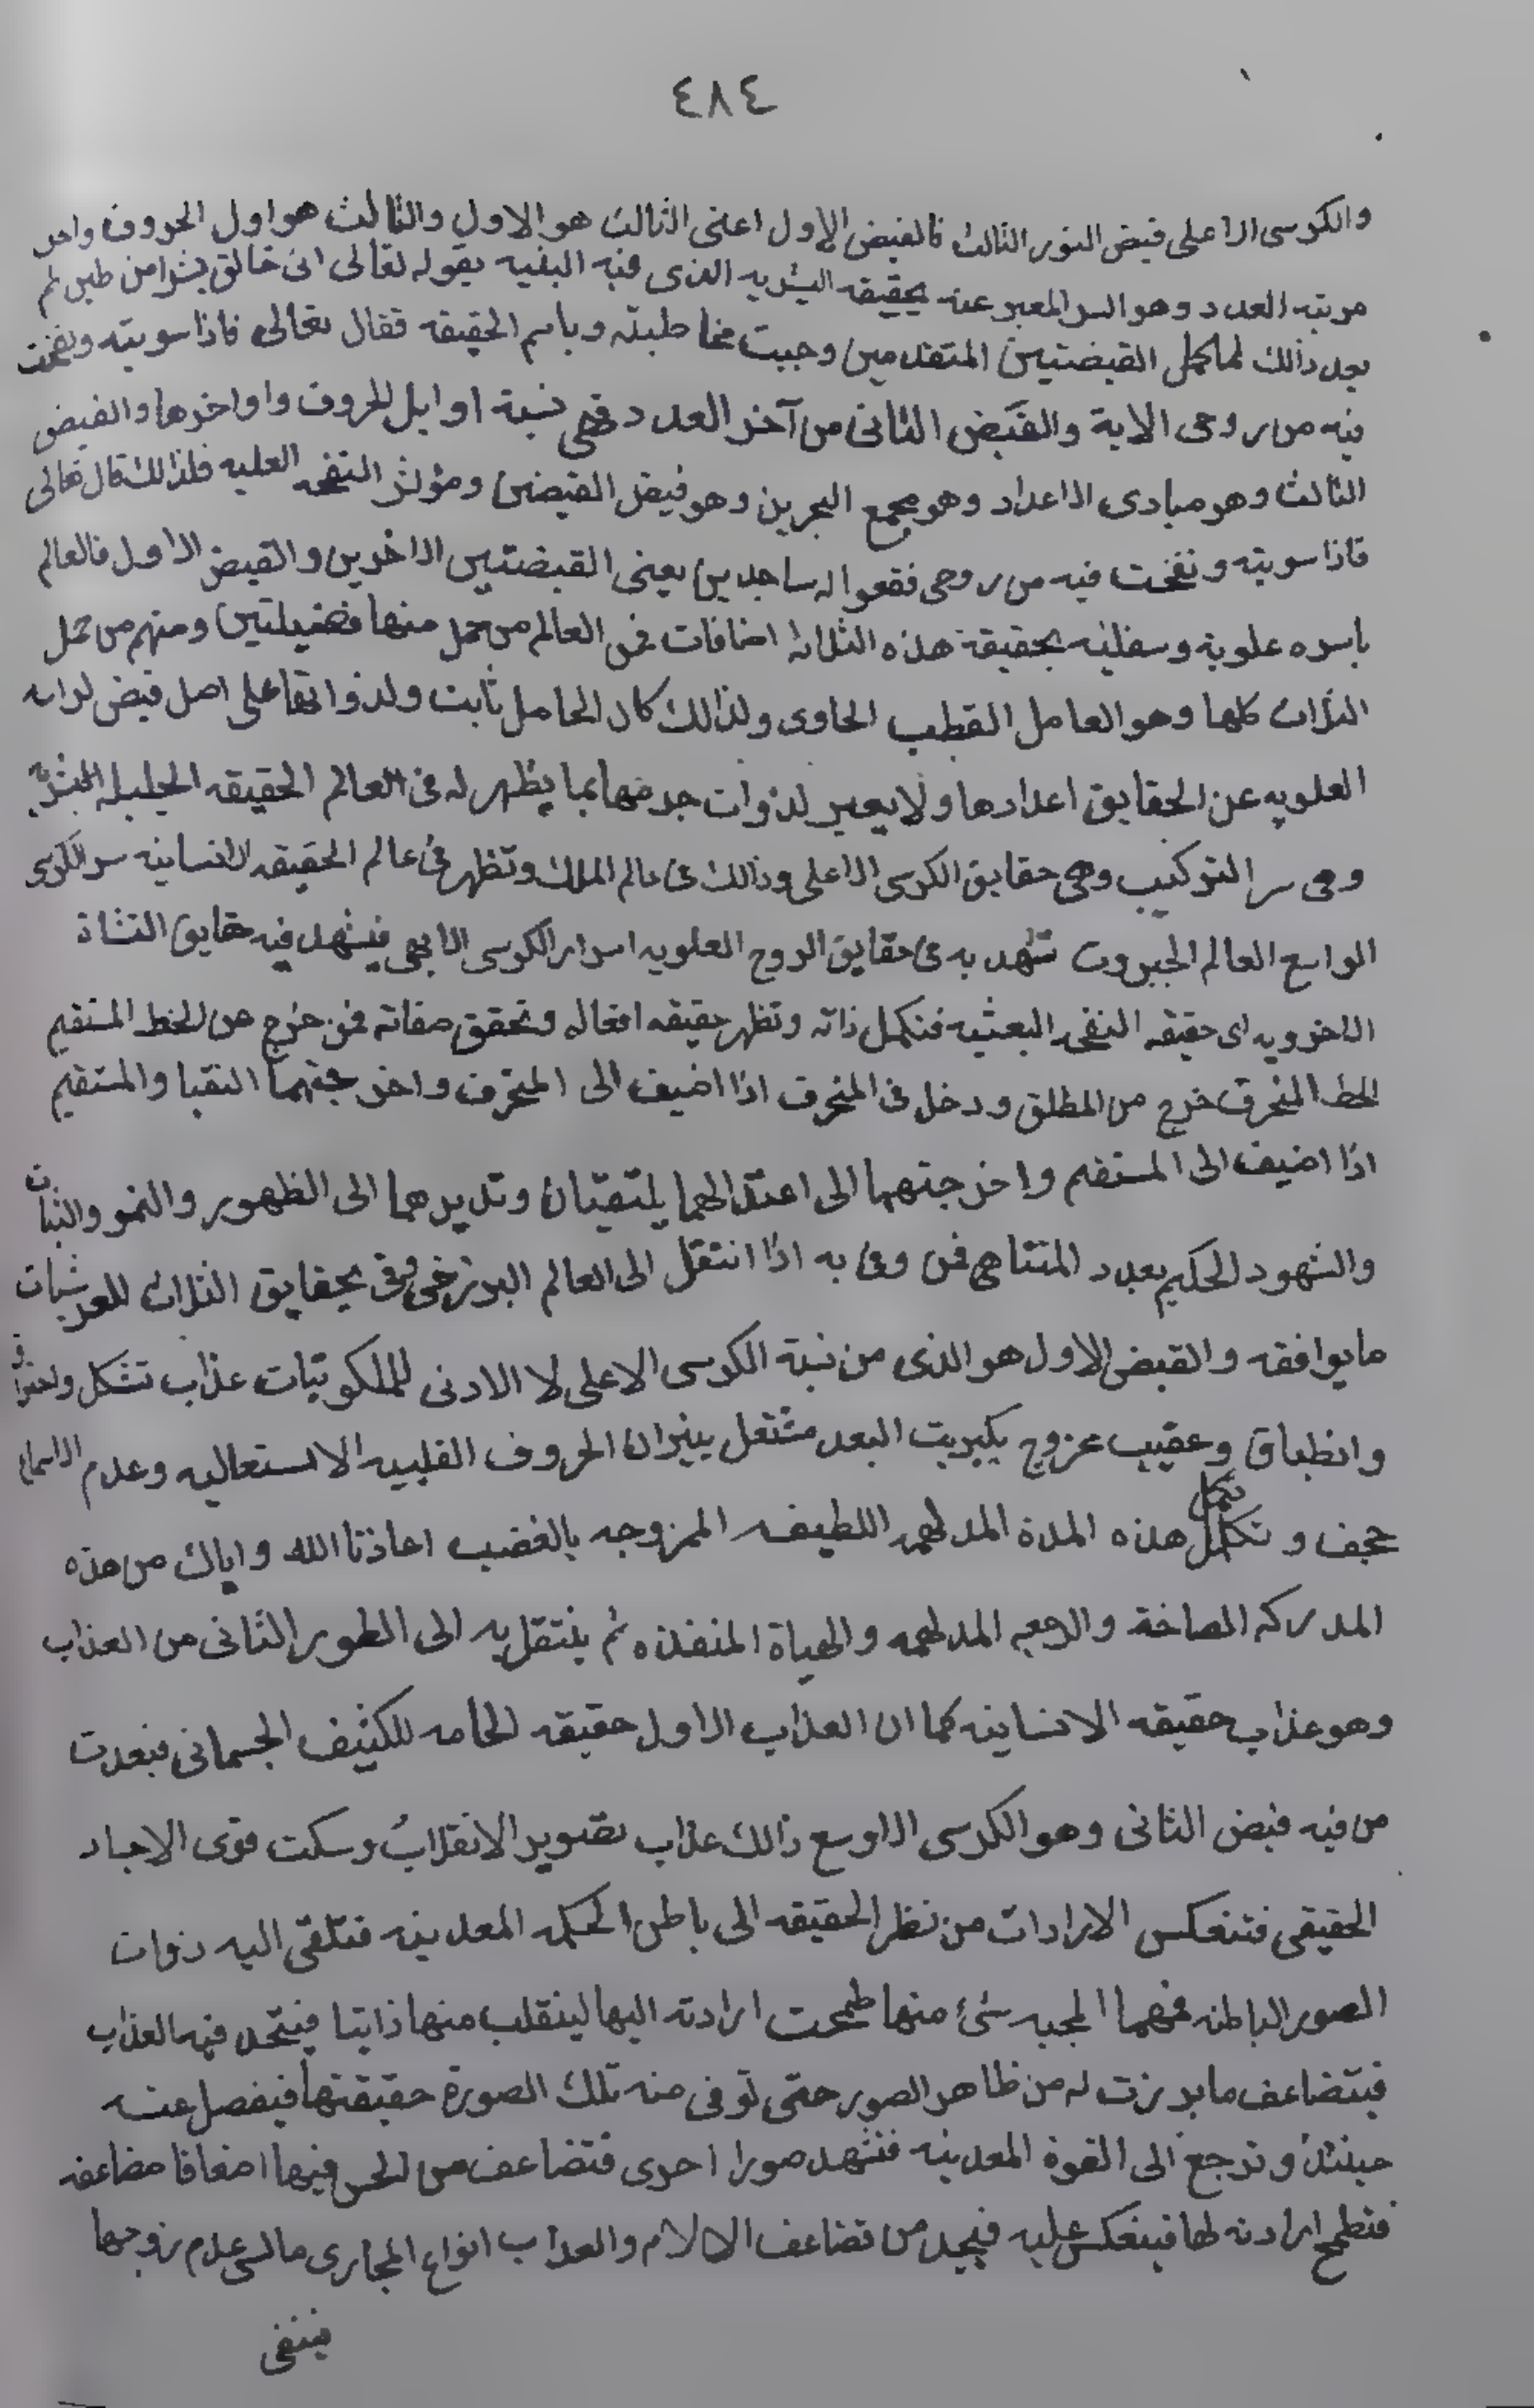 ٤٨٤
والكرسى الاعلى فيض النور الثالث فالفيض الاول اعنى الثالث هو الاول والثالث هو اول الحروف واخر
مرتبه العدد وهو السر المعبر عنه بحقيقه البشريه الذى فيه البنيه بقوله تعالى انى خالق بشرا من طين ثم
بعد ذالك لما كمل القبضتين المتقدمين وجبت مخاطبته وباسم الحقيقه فقال تعالى فاذا سويته ونفخت
فيه من روحى الاية والقبض الثانى من آخر العدد فهى نسبة اوايل الحروف واواخرها والفيض
الثالث وهو مبادى الاعداد وهو مجمع البحرين وهو فيض القبضين ومؤنث النفخه العليه فلذالك قال تعالى
فاذا سويته ونفخت فيه من روحى فقعوا له ساجدين يعنى القبضتين الاخرين والقبض الاول فالعالم
باسره علوية وسفليه بحقيقة هذه الثلاث اضافات فمن العالم من حمل منها فضيلتين ومنهم من حمل
الثلاث كلها وهو العامل القطب الحاوى ولذالك كان الحامل ثابت ولذواتها على اصل فيض لوايه
العلويه عن الحقايق اعدادها ولا يعير لذوات جد منها بما يظهر له فى العالم الحقيقه الجليله البشريه
وهى سر التركيب وهى حقايق الكرسى الاعلى وذالك فى عالم الملك وتظهر فى عالم الحقيقه الانسانيه سر الكرسى
الواسع العالم الجبروت تشهد به فى حقايق الروح العلويه اسرار الكرسى الابهى فيشهد فيه حقايق النشاة
الاخرويه اى حقيقه النفس البعثيه فتكمل ذاته وتظهر حقيقه افعاله وتحقق صفاته فمن خرج من الخط المستقيم
الخط المنحرف خرج من المطلق ودخل فى المنحرف اذا اضيف الى المنحرف واخرجتهما النقبا والمستقيم
اذا اضيف الى المستقيم واخرجتهما الى اعتدالهما يلتقيان وتديرهما الى الظهور والنمو والنبات
والشهود الحكيم بعدد المتناهى فمن وفى به اذا انتقل الى العالم البرزخى وفى بحقايق الثلاث للعرشيات
ما يوافقه والقبض الاول هو الذى من نسبة الكرسى الاعلى لا الادنى للملكوتيات عذاب تشكل واحتراق
وانطباق وعقيب عزوج بكبريت البعد مشتعل بنيران الحروف القلبيه الاستعاليه وعدم الاسماء
عجف و تكمل هذه المدة المدلهمه اللطيفه الممزوجه بالغضب اعاذنا الله واياك من هذه
المدركه الصاخة والرجعه المدلهمه والحياة المنفذه ثم ينتقل به الى الطور الثانى من العذاب
وهو عذاب حقيقه الانسانيه كما ان العذاب الاول حقيقه الخامه للكثيف الجسمانى فبعدت
من فيه فيض الثانى وهو الكرسى الاوسع ذالك عذاب تصوير الانقلاب وسكت قوى الاجساد
الحقيقى فتنعكس الارادات من نظر الحقيقه الى باطن الحكمه المعدينه فتلقى اليه ذوات
الصور الباطنه فمهما اعجبه شئ منها طمحت ارادته اليها لينقلب منها ذاتيا فيتحد فيه العذاب
فيتضاعف ما برزت له من ظاهر الصور حتى توفى منه تلك الصورة حقيقتها فيفصل عنه
حينئذ وترجع الى القوة المعدينه فتشهد صورا اخرى فتضاعف من الحس فيها اضعافا مضاعفه
فتطمح ارادته لها فينعكس عليه فيجد من تضاعف الالام والعذاب انواع المجارى مالى عدم زوجها
فينفى